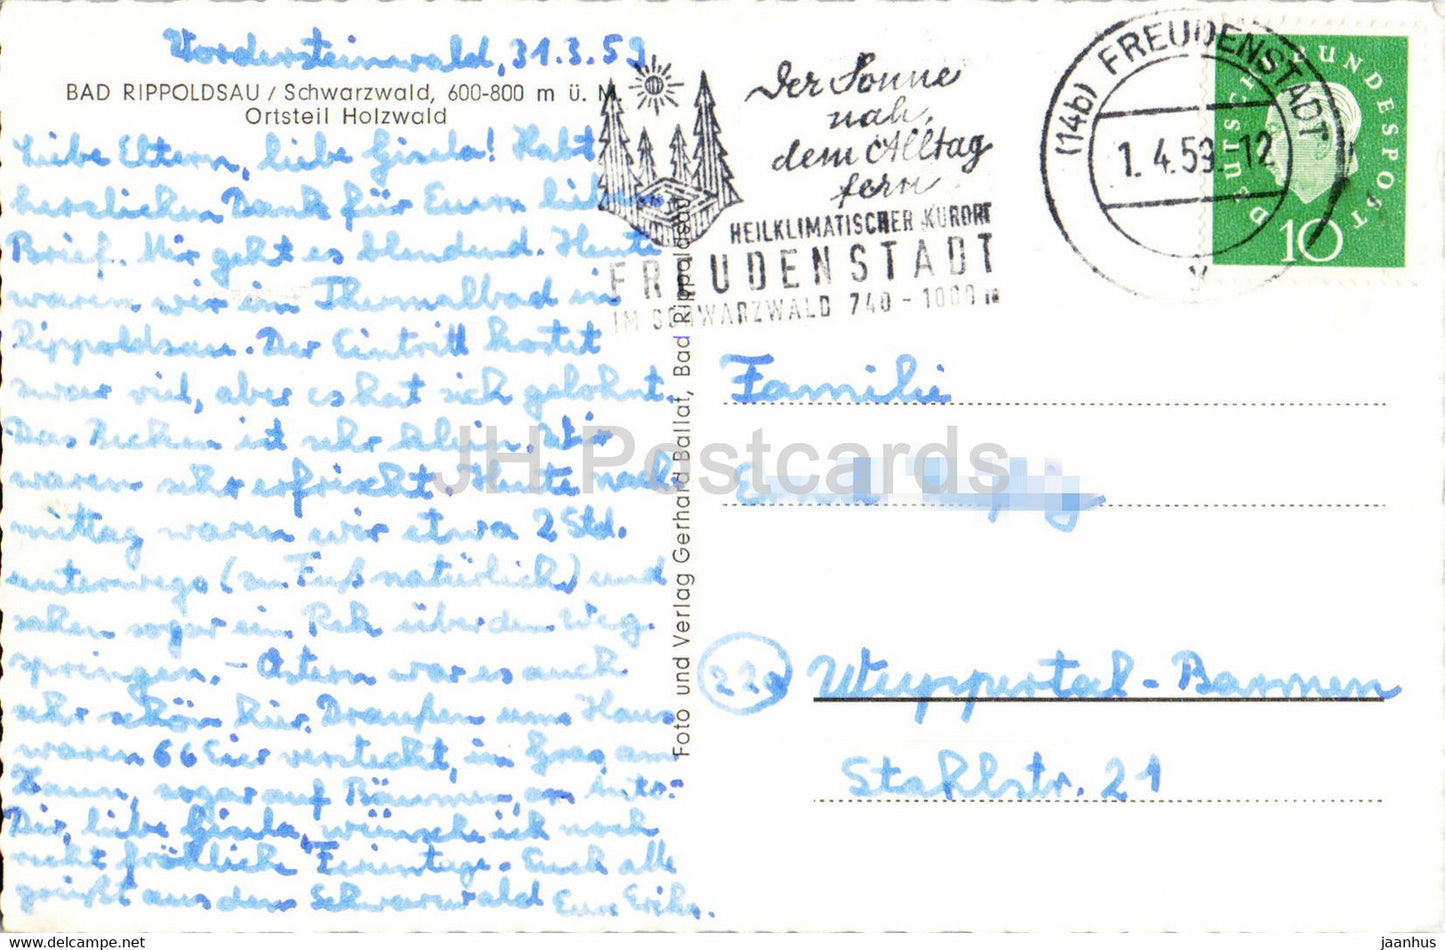 Vordersteinwald, 31.3.59
BAD RIPPOLDSAU / Schwarzwald, 600-800 m ü. M.
Ortsteil Holzwald
Liebe Eltern, liebe Gisela! Habt
herzlichen Dank für Euren lieben
Brief. Mir geht es blendend. Heute
waren wir im Thermalbad in
Rippoldsau. Der Eintritt kostet
zwar viel, aber es hat sich gelohnt.
Das Becken ist sehr klein. Wir
waren sehr erfrischt. Heute nach-
mittag waren wir etwa 2 Std.
unterwegs (zu Fuß natürlich) und
sahen sogar ein Reh über den Weg
springen. - Ostern war es auch
sehr schön hier. Draußen ums Haus
waren 66 Eier versteckt, im Gras, am
Zaun, sogar auf Bäumen, am Auto.
Dir, liebe Gisela, wünsche ich noch
recht fröhliche Ferientage. Euch alle
grüßt aus dem Schwarzwald Eure
Der Sonne
nah,
dem Alltag
fern
HEILKLIMATISCHER KURORT
FREUDENSTADT
IM SCHWARZWALD 740 - 1000 m
(14b) FREUDENSTADT
1.4.59-12
DEUTSCHE BUNDESPOST
10
Foto und Verlag Gerhard Ballat, Bad Rippoldsau
Familie
(22a) Wuppertal-Barmen
Stahlstr. 21
JH Postcards
www.delcampe.net
jaanhus